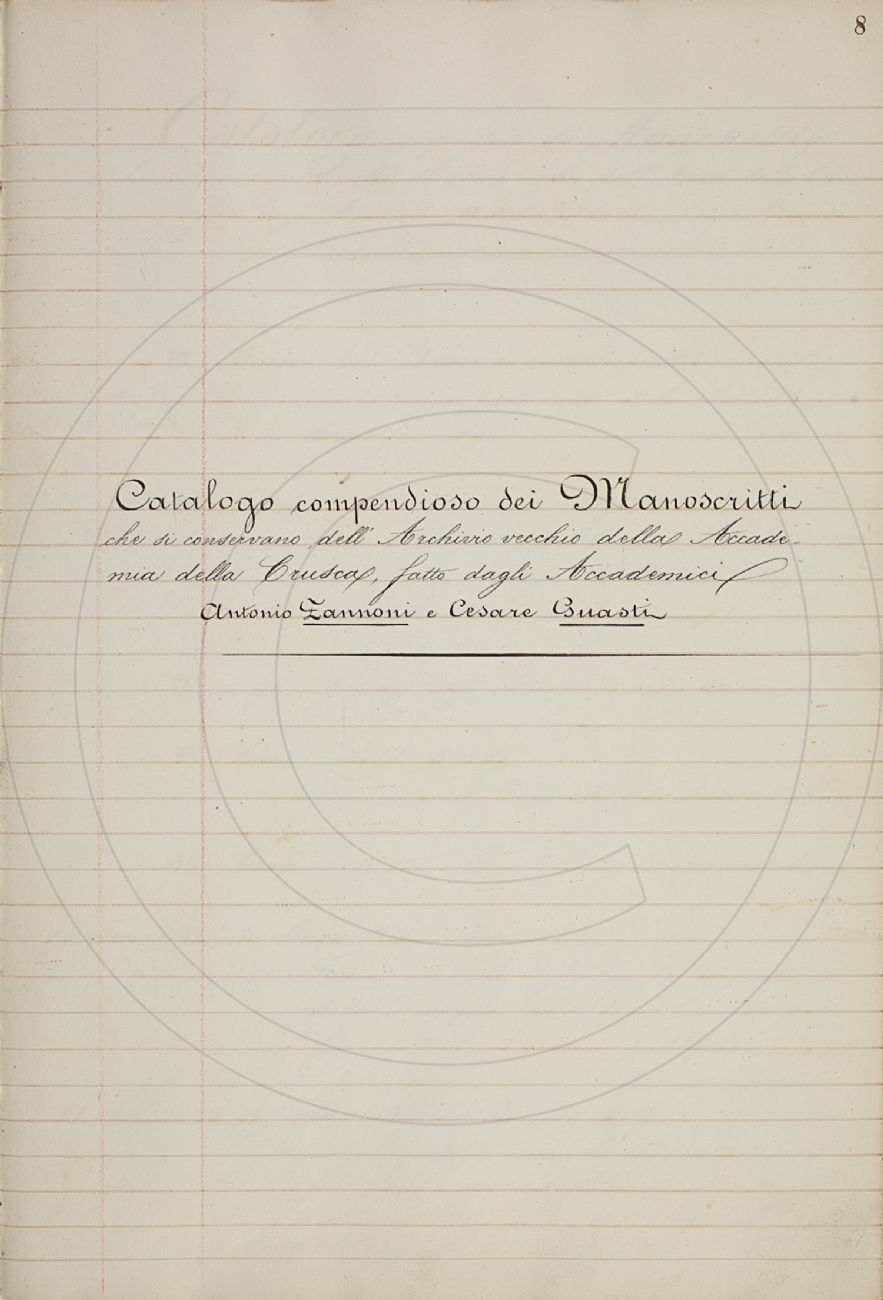 8
Catalogo compendioso dei Manoscritti
che si conservano dell' Archivio vecchio della Accade-
mia della Crusca, fatto dagli Accademici
Antonio Zannoni e Cesare Guasti